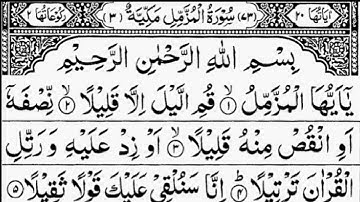 اٰیَاتُهَا ۲۰ (۷۳) سُوْرَةُ الْمُزَّمِّلِ مَكِّیَّةٌ (۳) رُكُوْعَاتُهَا ۲
بِسْمِ اللّٰهِ الرَّحْمٰنِ الرَّحِیْمِ
یٰۤاَیُّهَا الْمُزَّمِّلُ ۙ﴿۱﴾ قُمِ الَّیْلَ اِلَّا قَلِیْلًا ۙ﴿۲﴾ نِّصْفَهٗۤ
اَوِ انْقُصْ مِنْهُ قَلِیْلًا ۙ﴿۳﴾ اَوْ زِدْ عَلَیْهِ وَ رَتِّلِ
الْقُرْاٰنَ تَرْتِیْلًا ؕ﴿۴﴾ اِنَّا سَنُلْقِیْ عَلَیْكَ قَوْلًا ثَقِیْلًا ﴿۵﴾